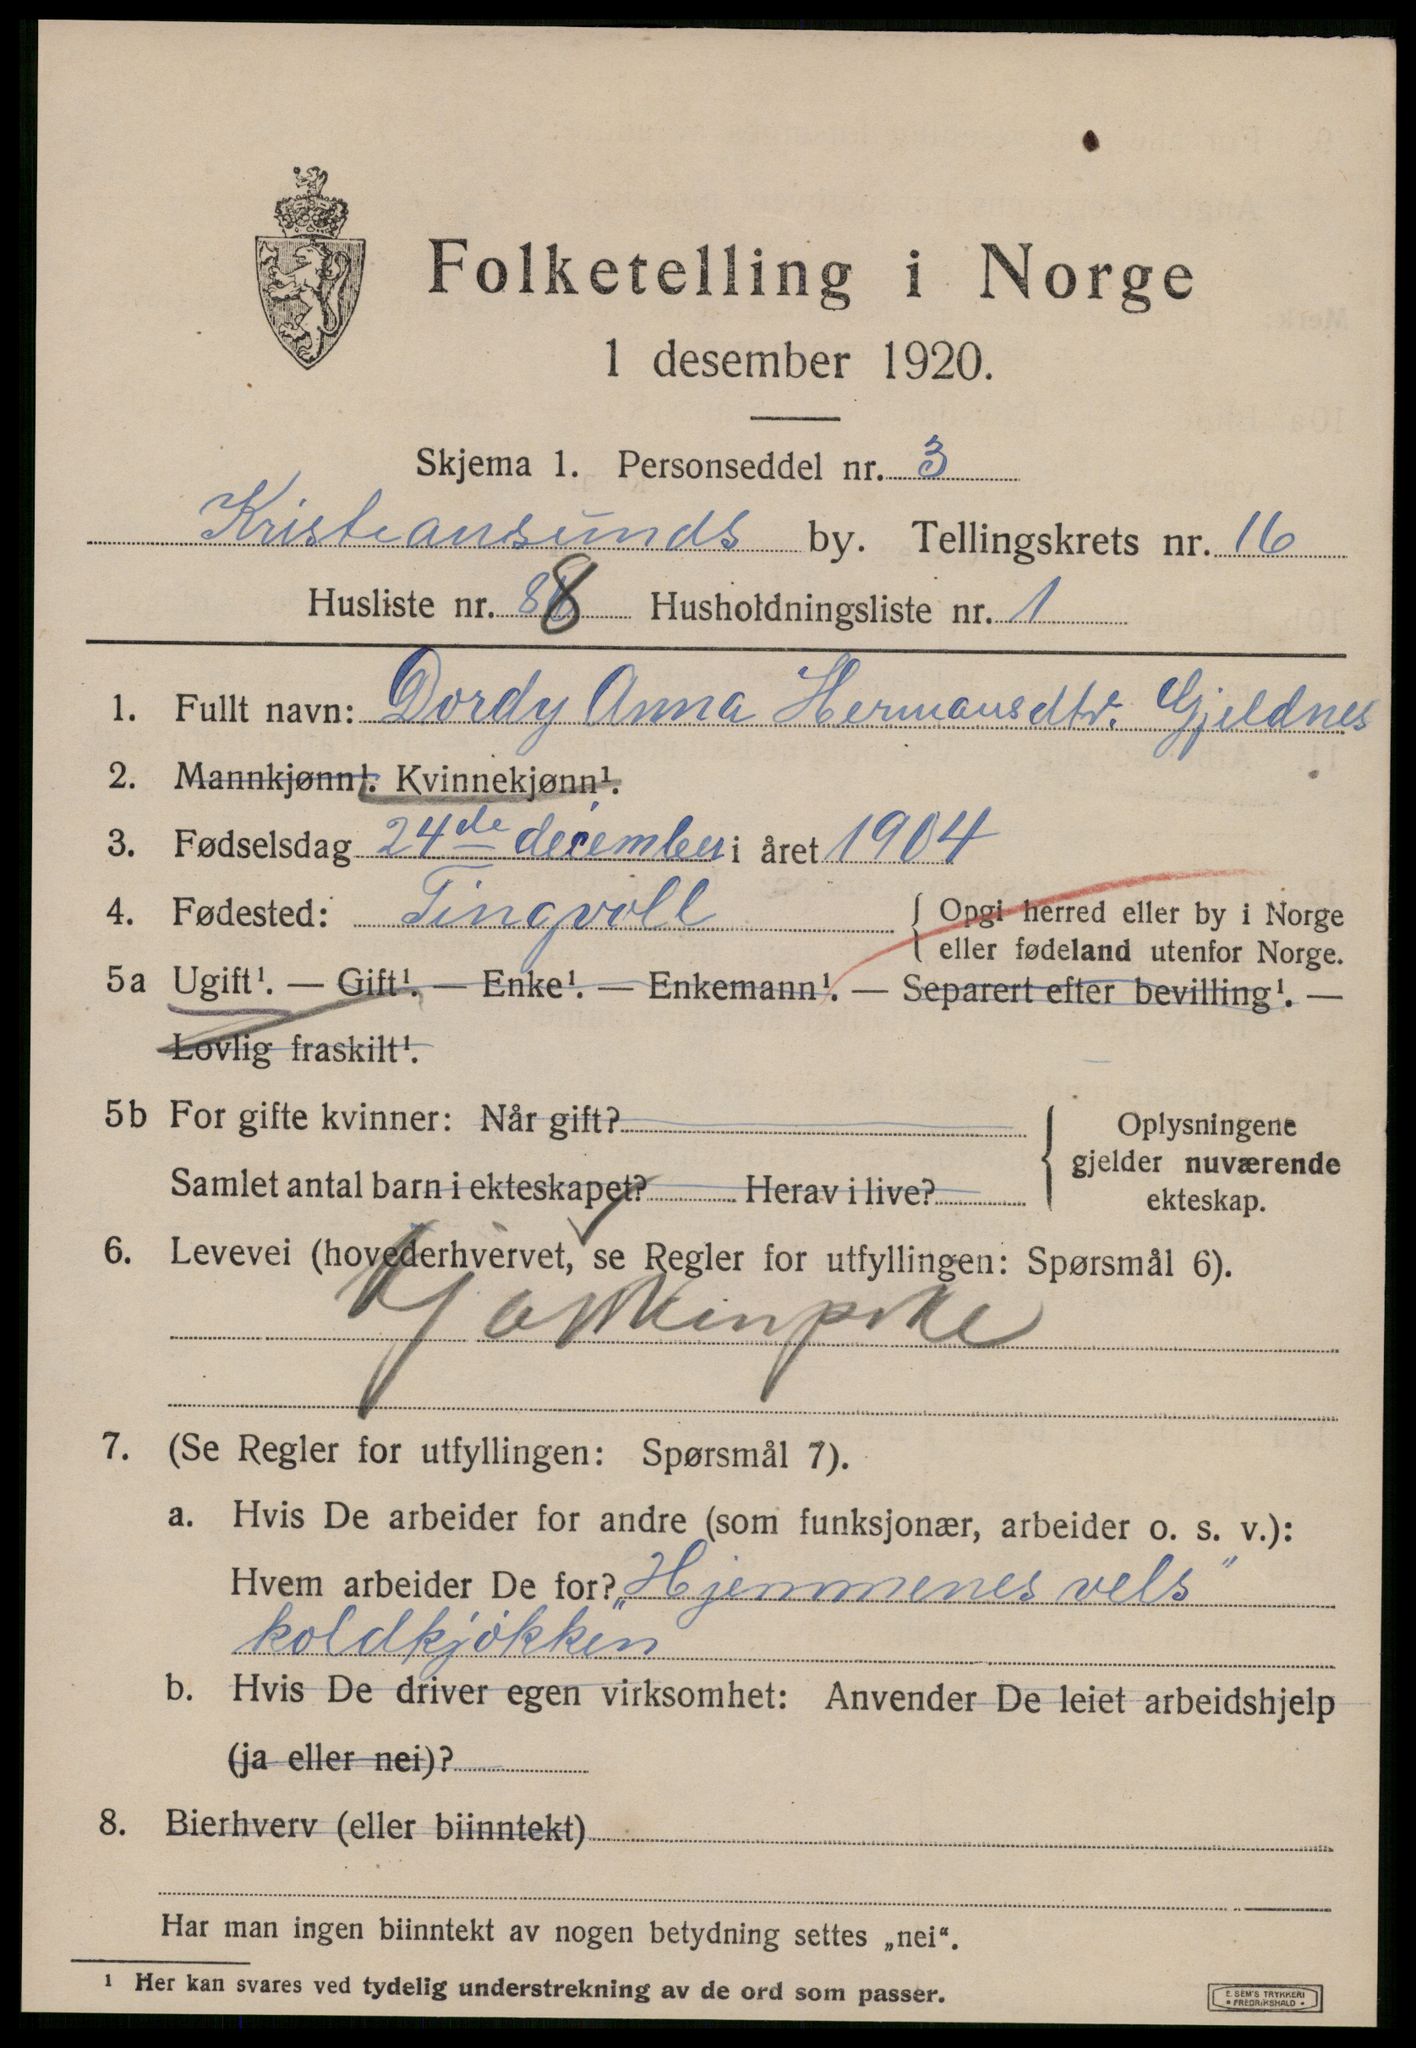 Folketelling i Norge
1 desember 1920.
Skjema 1. Personseddel nr. 3
Kristiansunds by. Tellingskrets nr. 16
Husliste nr. 8 Husholdningsliste nr. 1
1. Fullt navn: Dordy Anna Hermansdtr. Gjeldnes
2. Mannkjønn¹. Kvinnekjønn¹.
3. Fødselsdag 24de december i året 1904
4. Fødested: Tingvoll { Opgi herred eller by i Norge
eller fødeland utenfor Norge.
5a Ugift¹. — Gift¹. — Enke¹. — Enkemann¹. — Separert efter bevilling¹. —
Lovlig fraskilt¹.
5b For gifte kvinner: Når gift? { Oplysningene
gjelder nuværende
Samlet antal barn i ekteskapet? Herav i live?
ekteskap.
6. Levevei (hovederhvervet, se Regler for utfyllingen: Spørsmål 6).
7. (Se Regler for utfyllingen: Spørsmål 7).
a. Hvis De arbeider for andre (som funksjonær, arbeider o. s. v.):
Hvem arbeider De for? „Hjemmenes vels"
koldkjøkken
b. Hvis De driver egen virksomhet: Anvender De leiet arbeidshjelp
(ja eller nei)?
8. Bierhverv (eller biinntekt)
Har man ingen biinntekt av nogen betydning settes „nei“.
¹ Her kan svares ved tydelig understrekning av de ord som passer.
E. SEM'S TRYKKERI
• FREDRIKSHALD •